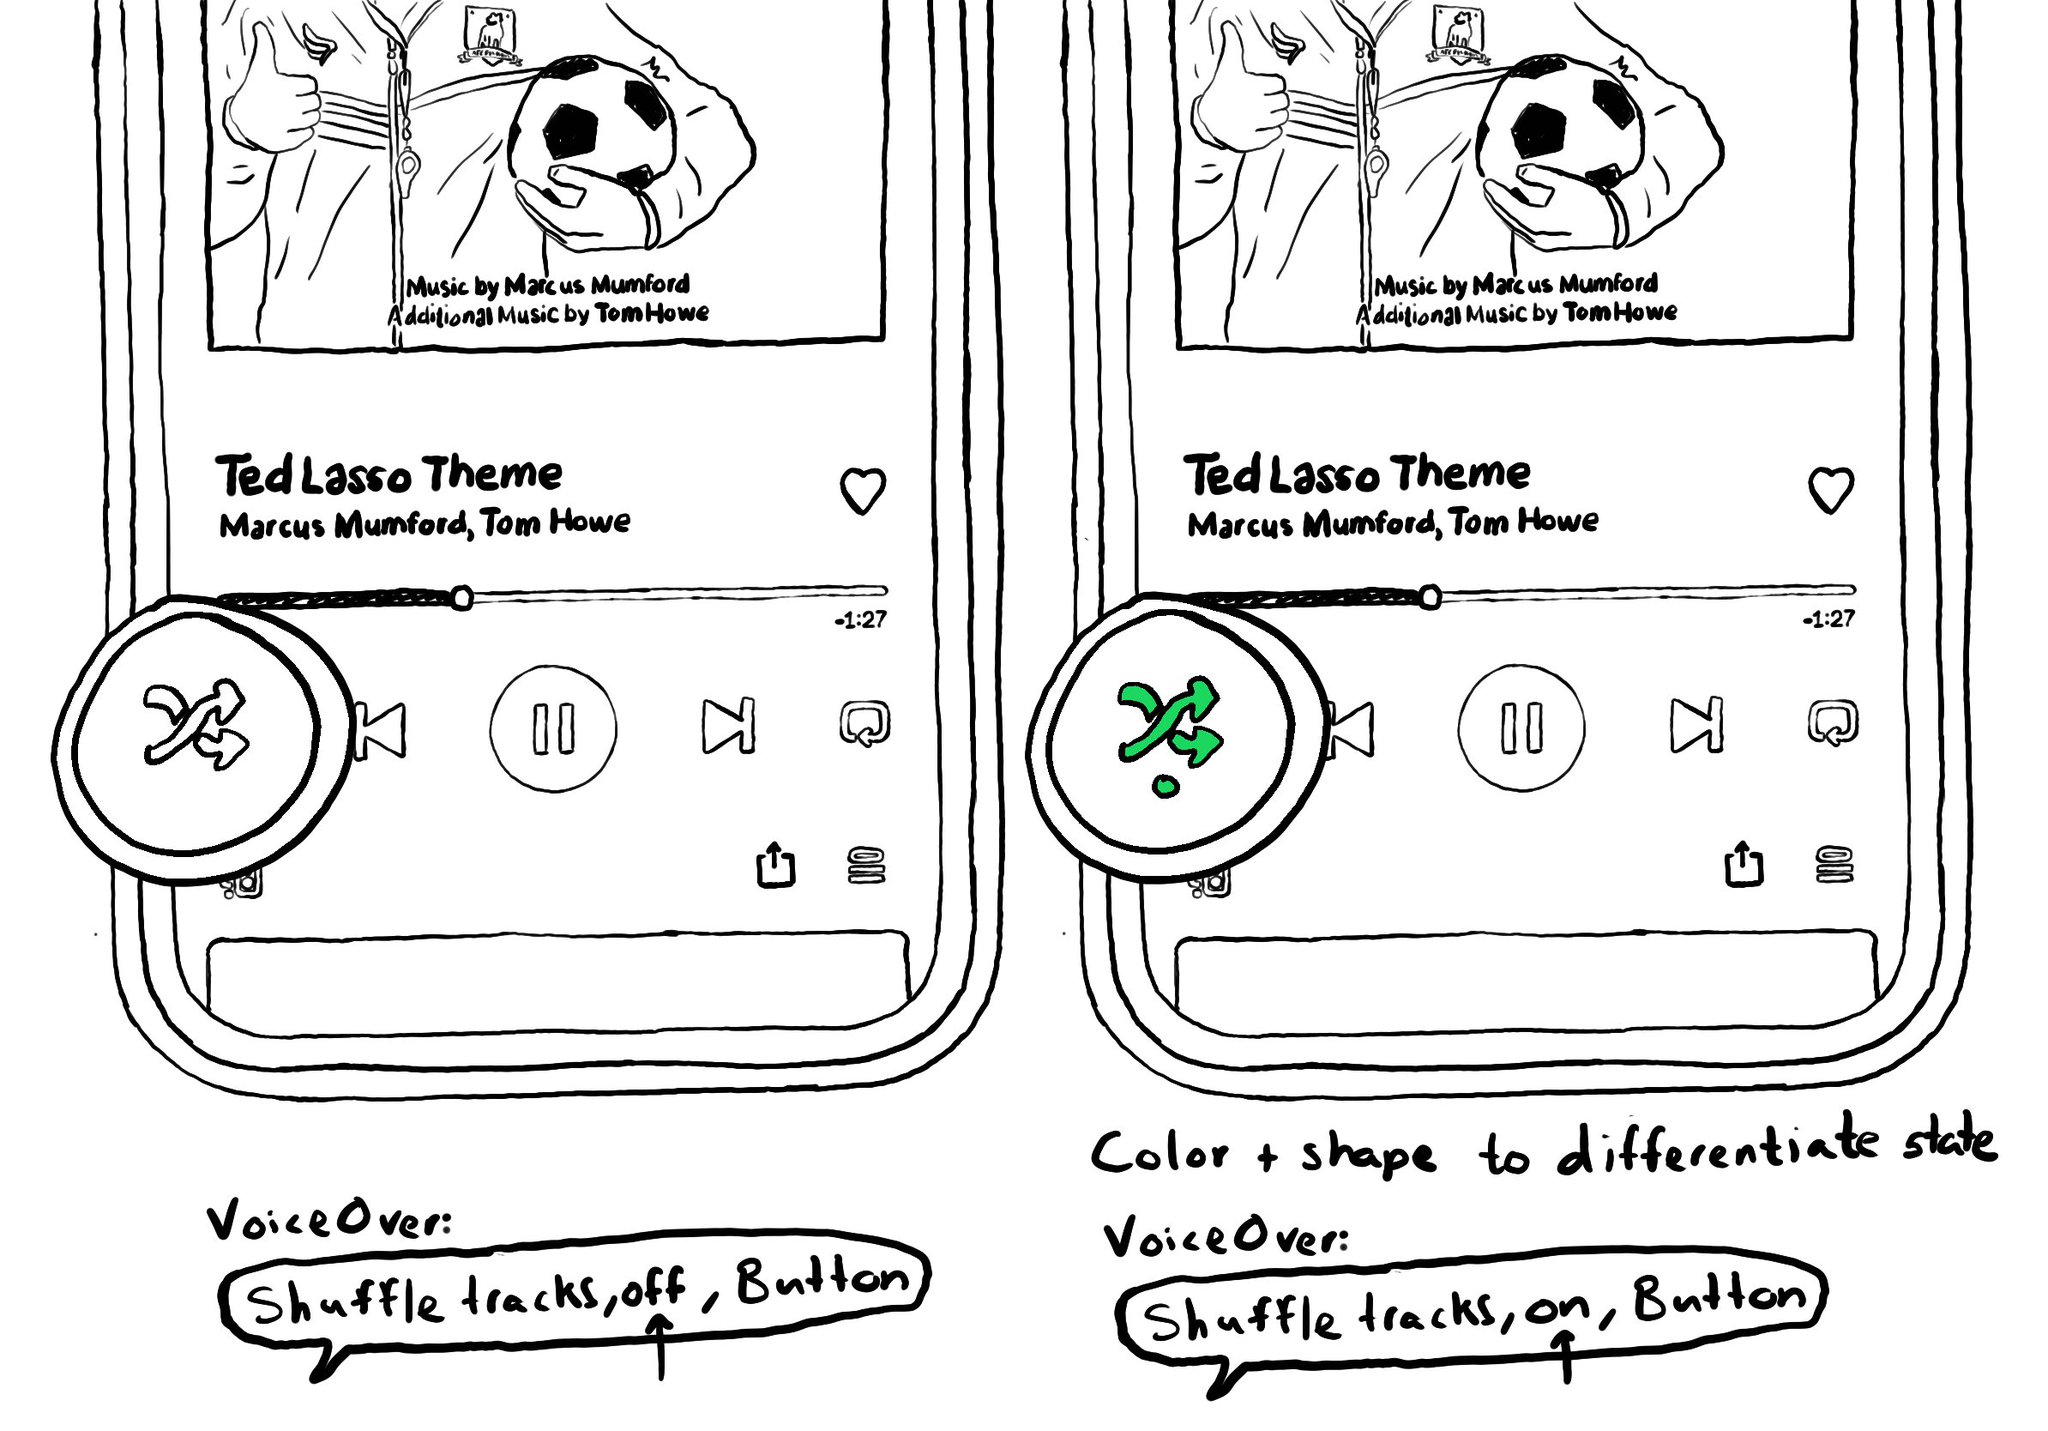 Music by Marcus Mumford
Additional Music by Tom Howe
Ted Lasso Theme
Marcus Mumford, Tom Howe
-1:27
VoiceOver:
Shuffle tracks, off, Button
Music by Marcus Mumford
Additional Music by Tom Howe
Ted Lasso Theme
Marcus Mumford, Tom Howe
-1:27
Color + shape to differentiate state
VoiceOver:
Shuffle tracks, on, Button